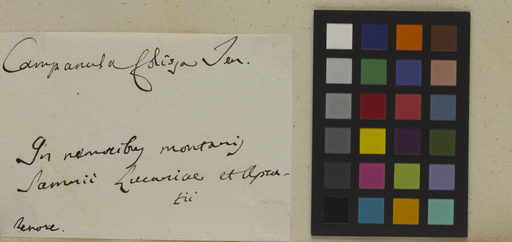 Campanula foliosa Ten.
In nemoribus montanis
Samnii Lucaniae et Apru-
tii
Tenore.